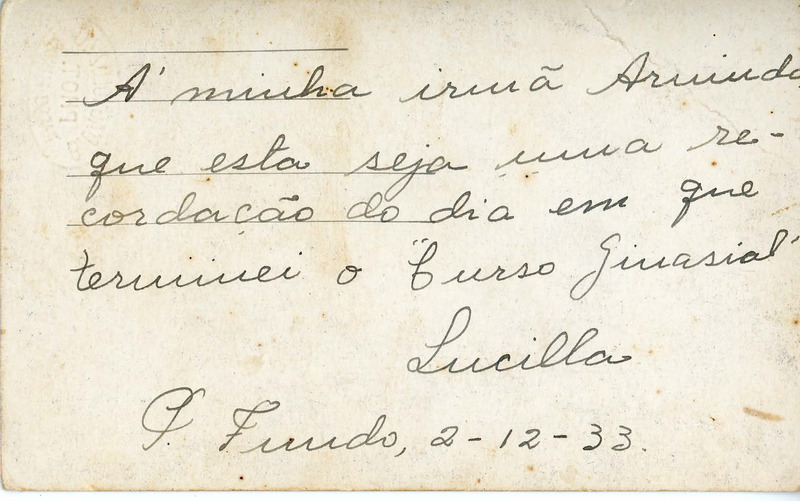 A' minha irmã Arminda
que esta seja uma re-
cordação do dia em que
terminei o "Curso Ginasial"
Lucilla
P. Fundo, 2-12-33.